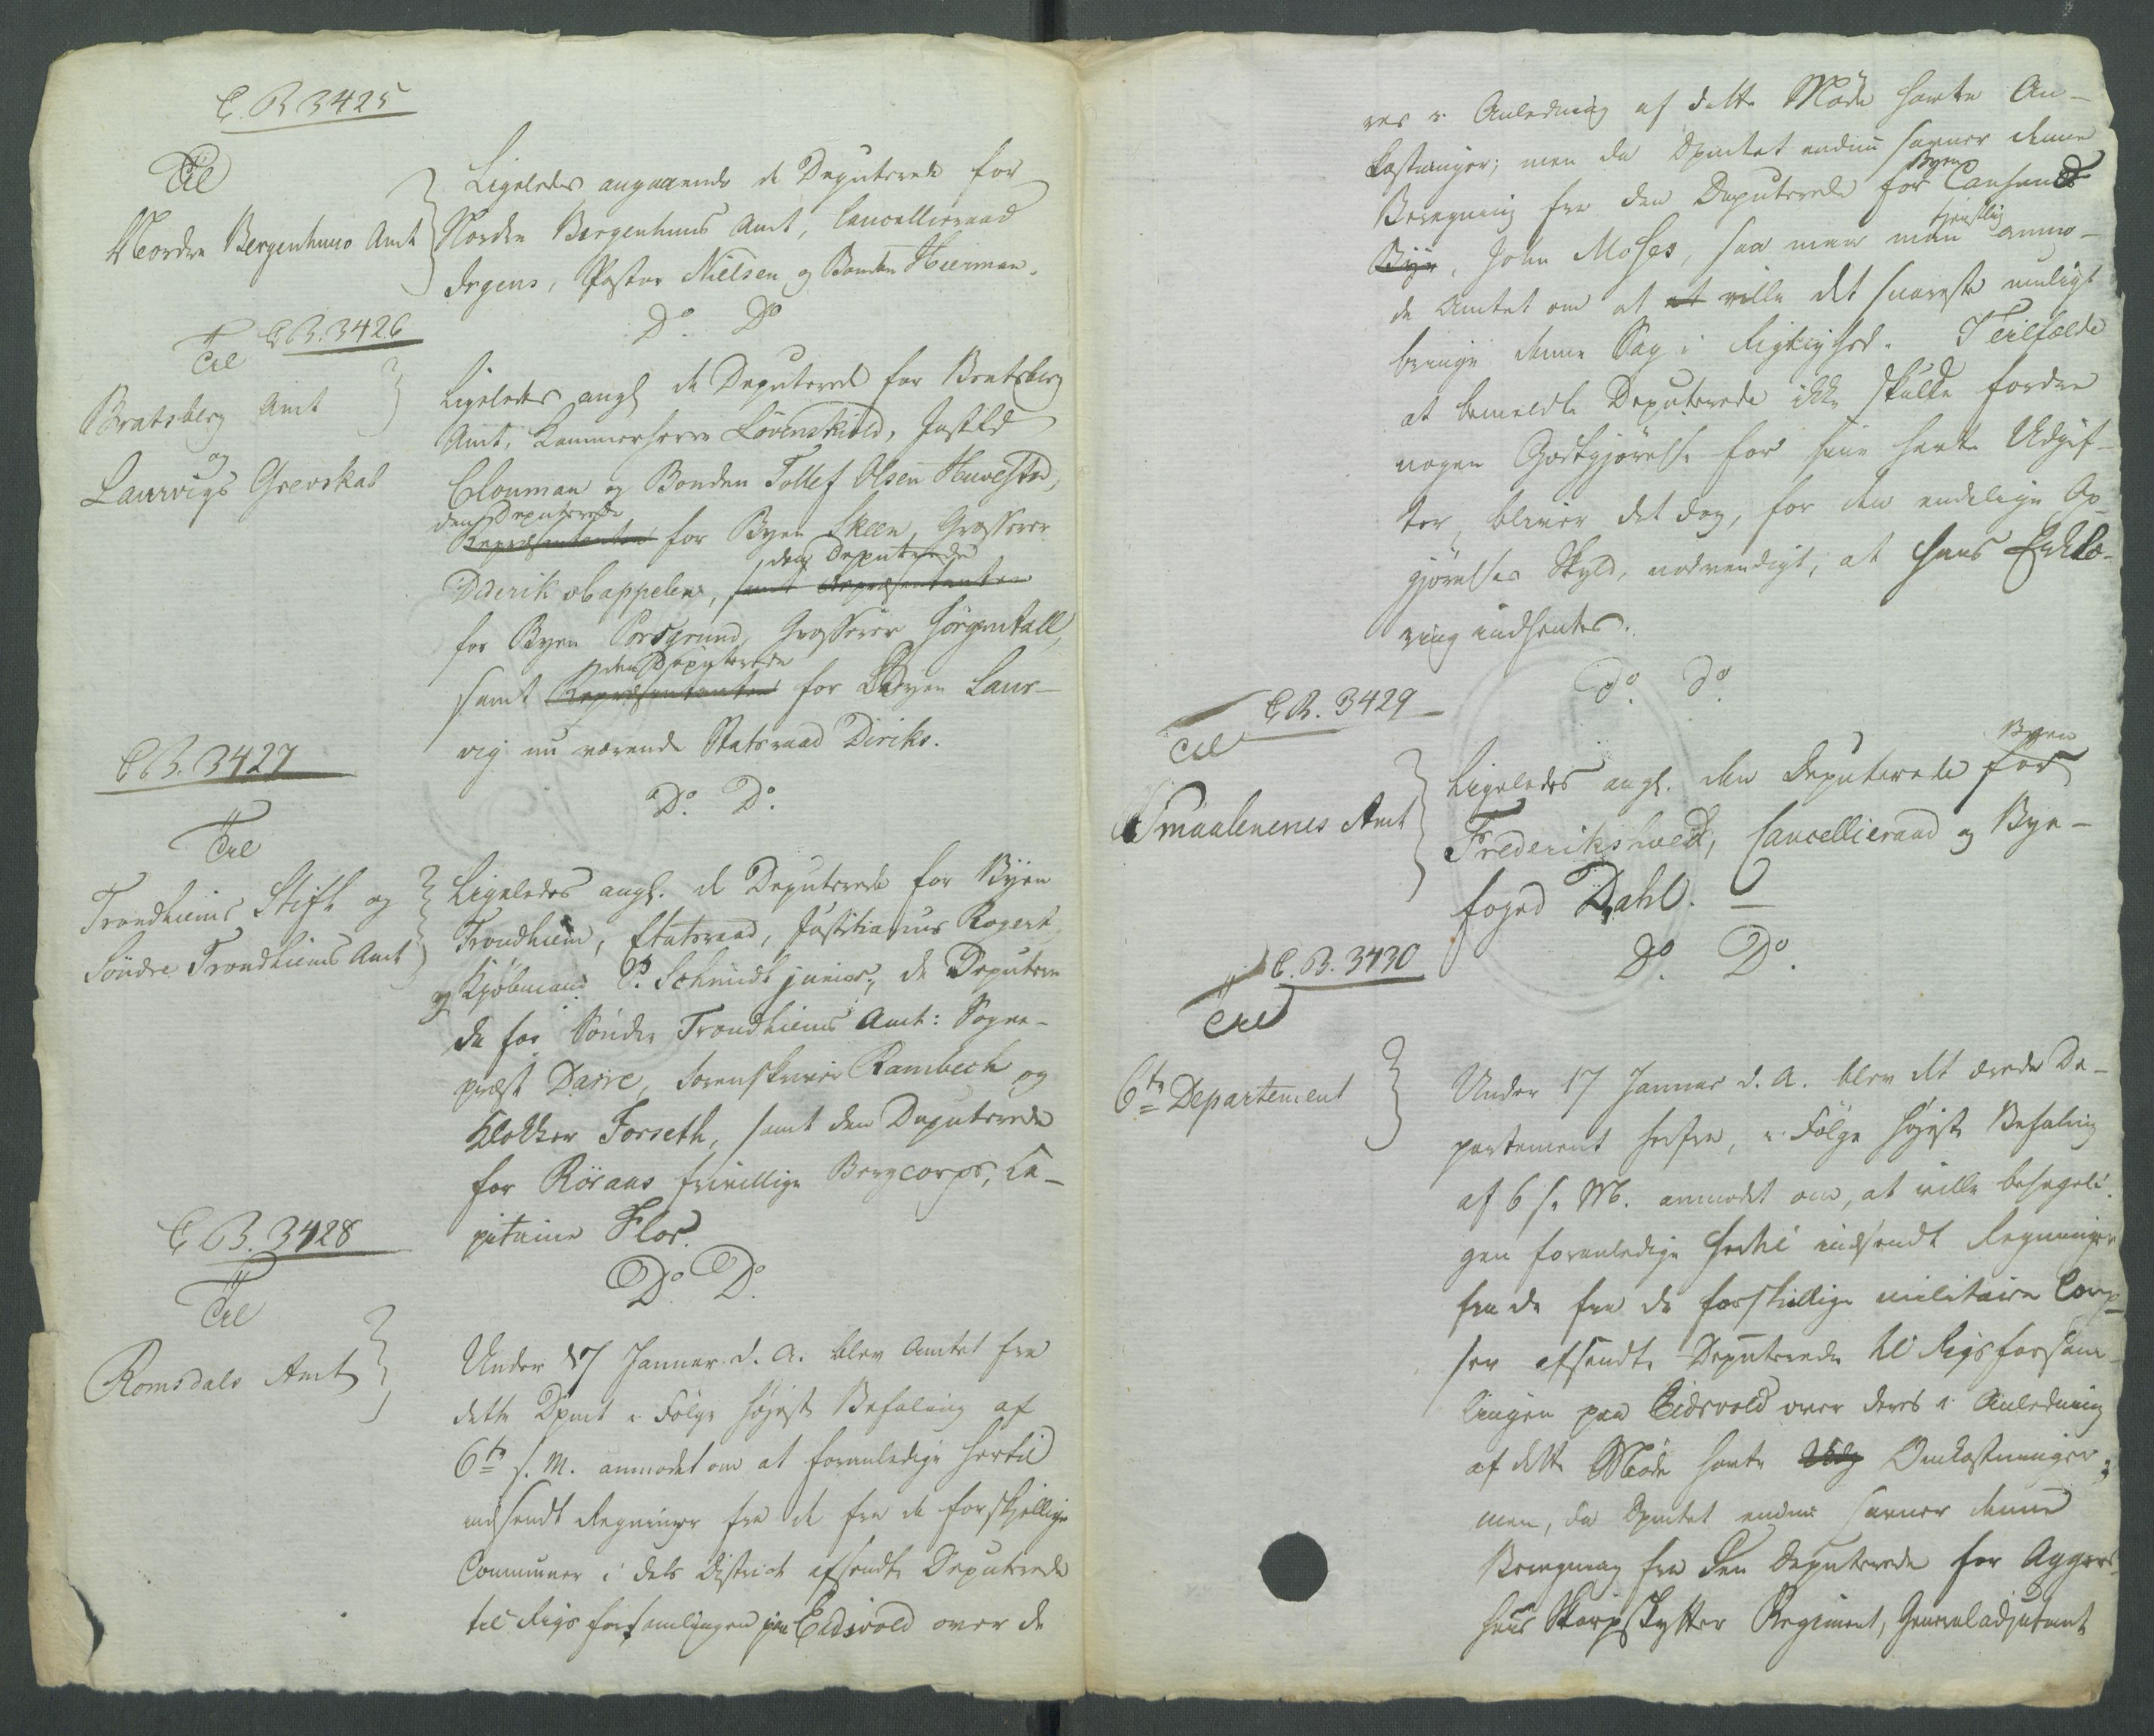 C. B 3425
Til
Nordre Bergenhuus Amt
Ligeledes angaaende de Deputerede for
Nordre Bergenhuus Amt, Cancelliraad
Irgens, Pastor Nielsen og Bonden Hierman.
Do. Do
C. B. 3426
Til
Bratsberg Amt
og
Laurvigs Grevskab
Ligeledes angl de Deputerede for Bratsberg
Amt, Kammerherre Lövenskiold, Justrd
Cloumann og Bonden Tollef Olsen Huvestad,
den Deputerede
Repræsentanten for Byen Skeen, Grosserer
den Deputerede
Diderik v Cappelen, samt Repræsentanten
for Byen Porsgrund, Grosserer Jörgen Aall,
den Deputerede
samt Repræsentanten for Byen Laur-
vig nu værende Statsraad Diriks.
Do. Do.
C. B. 3427
Til
Trondhiems Stift og
Söndre Trondhiems Amt
Ligeledes angl. de Deputerede for Byen
Trondhiem, Etatsraad, Justitiarius Rogert
og Kjöbmand P. Schmidt junior, de Deputere
de for Söndre Trondhiems Amt: Sogne-
præst Darre, Sorenskriver Rambech og
Klokker Forseth, samt den Deputerede
for Röraas frivillige Bergcorps, Ca-
pitaine Floer.
Do Do.
C. B. 3428
Til
Romsdals Amt
Under 17 Januar d. A. blev Amtet fra
dette Dpmt i Fölge höjeste Befaling af
6te s. M. anmodet om at foranledige hertil
indsendt Regninger fra de fra de forskjellige
Communer i dets District afsendte Deputerede
til Rigsforsamlingen paa Eidsvold over de
res i Anledning af dette Möde havte Om-
kostninger; men da Dpmtet endnu savner denne
Byen
Beregning fra den Deputerede for Cansund
tjenstlig
Bye, John Moses, saa maa man anmo-
de Amtet om at at ville det snareste muligt
bringe denne Sag i Rigtighed. I Tilfælde
at bemeldte Deputerede ikke skulde fordre
nogen Godtgjörelse for sine havte Udgif-
ter, bliver det dog, for den endelige Op-
gjörelses Skyld, nödvendigt, at hans Erklæ-
ring indhentes.
Do. Do.
C. B. 3429
Til
Smaalenenes Amt
Byen
Ligeledes angl. den Deputerede for
Frederikshald, Cancelliraad og Bye-
foged Dahl.
Do. Do.
C. B. 3430
Til
6te Departement
Under 17 Januar d. A. blev det ærede De-
partement herfra, i Fölge höjeste Befaling
af 6 s. M. anmodet om, at ville behageli-
gen foranledige hertil indsendt Regninger
fra de fra de forskjellige militaire Corp-
ser afsendte Deputerede til Rigsforsam-
lingen paa Eidsvold over deres i Anledning
af dette Möde havte Udg Omkostninger;
men, da Dpmtet endnu savner denne
Beregning fra den Deputerede for Aggers-
huus Skarpskytter Regiment, Generaladjutant